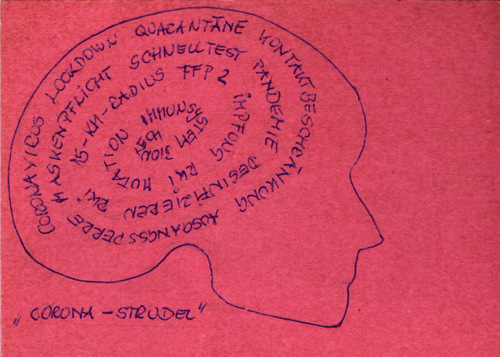 CORONAVIRUS LOCKDOWN QUARANTÄNE KONTAKTBESCHRÄNKUNG AUSGANGSSPERRE
MASKENPFLICHT SCHNELLTEST PANDEMIE DESINFIZIEREN RKI
15-KM-RADIUS FFP2 IMPFUNG RKI MUTATION
IMMUNSYSTEM
„CORONA-STRUDEL"